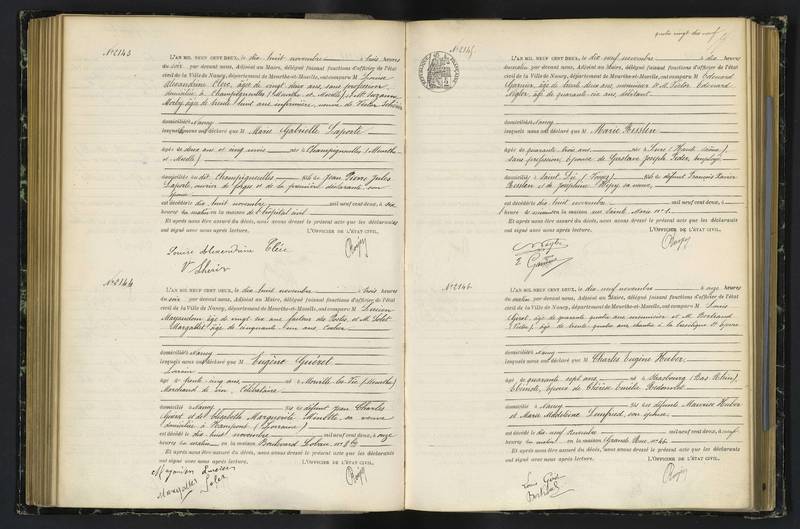 Nº 2143
L'AN MIL NEUF CENT DEUX, le dix huit novembre à trois heures
du soir par devant nous, Adjoint au Maire, délégué faisant fonctions d'officier de l'état
civil de la Ville de Nancy, département de Meurthe-et-Moselle, ont comparu M Louise
Alexandrine Clerc, âgée de vingt deux ans, sans profession
domiciliée à Champigneulles (Meurthe et Moselle) et M
âgée de trente ans infirmière, veuve de Victor
domiciliés Nancy
lesquels nous ont déclaré que M Marie Gabrielle Laporte
agée de deux ans et cinq mois née à Champigneulles (Meurthe
et Moselle)
domiciliée au dit Champigneulles fille de Jean Pierre Jules
Laporte, ouvrier de forge et de la première déclarante, son
épouse
est décédée dix huit novembre mil neuf cent deux, à six
heures du matin en la maison de l'hôpital civil
Et après nous être assuré du décès, nous avons dressé le présent acte que les déclarants
ont signé avec nous après lecture. L'OFFICIER DE L'ÉTAT CIVIL,
Louise Alexandrine
Nº 2144
L'AN MIL NEUF CENT DEUX, le dix huit novembre à trois heures
du soir par devant nous, Adjoint au Maire, délégué faisant fonctions d'officier de l'état
civil de la Ville de Nancy, département de Meurthe-et-Moselle, ont comparu M Lucien
âgé de vingt six ans facteur des Postes et M
Margallet âgé de cinquante un ans
domiciliés Nancy
lesquels nous ont déclaré que M Eugène
agé de trente cinq ans né à (Meurthe)
Marchand de vin, célibataire
domicilié à Nancy fils de défunt Jean Charles
et de Elisabeth Marguerite sa veuve
domiciliée à (Lorraine)
est décédé le dix huit novembre mil neuf cent deux, à onze
heures du matin en la maison Boulevard Lobau, nº
Et après nous être assuré du décès, nous avons dressé le présent acte que les déclarants
ont signé avec nous après lecture. L'OFFICIER DE L'ÉTAT CIVIL,
Lucien
quatre vingt dix neuf
Nº 2145
L'AN MIL NEUF CENT DEUX, le dix neuf novembre à dix heures
du matin par devant nous, Adjoint au Maire, délégué faisant fonctions d'officier de l'état
civil de la Ville de Nancy, département de Meurthe-et-Moselle, ont comparu M Edouard
Garnier, âgé de trente deux ans, menuisier et M Victor Edouard
âgé de quarante six ans, débitant
domiciliés Nancy
lesquels nous ont déclaré que M Marie
agée de quarante trois ans née à
sans profession épouse de Gustave Joseph employé
domiciliée à Saint Dié (Vosges) fille de défunt François Xavier
et de Joséphine sa veuve
est décédée dix huit novembre mil neuf cent deux, à
heures en la maison rue Sainte Marie nº 1
Et après nous être assuré du décès, nous avons dressé le présent acte que les déclarants
ont signé avec nous après lecture. L'OFFICIER DE L'ÉTAT CIVIL,
Nº 2146
L'AN MIL NEUF CENT DEUX, le dix neuf novembre à onze heures
du matin par devant nous, Adjoint au Maire, délégué faisant fonctions d'officier de l'état
civil de la Ville de Nancy, département de Meurthe-et-Moselle, ont comparu M Louis
âgé de quarante quatre ans menuisier et M Bertrand
âgé de trente quatre ans chantre à la basilique St Epvre
domiciliés Nancy
lesquels nous ont déclaré que M Charles Eugène Huber
agé de quarante sept ans né à Strasbourg (Bas Rhin)
Ebéniste, époux de Thérèse Emilie
domicilié à Nancy fils des défunts Maurice Huber
et Marie Madeleine son épouse
est décédé dix neuf novembre mil neuf cent deux, à neuf
heures du matin en la maison Grande Rue, nº
Et après nous être assuré du décès, nous avons dressé le présent acte que les déclarants
ont signé avec nous après lecture. L'OFFICIER DE L'ÉTAT CIVIL,